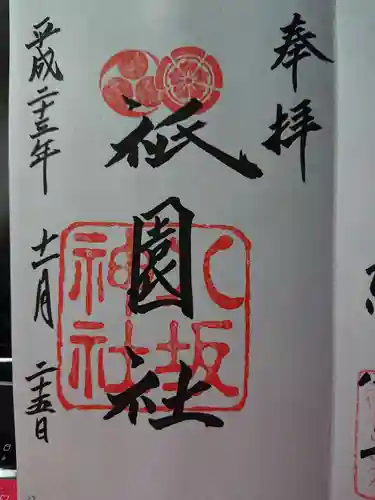 奉拝
祇園社
八坂神社
平成二十三年
十一月
二十五日